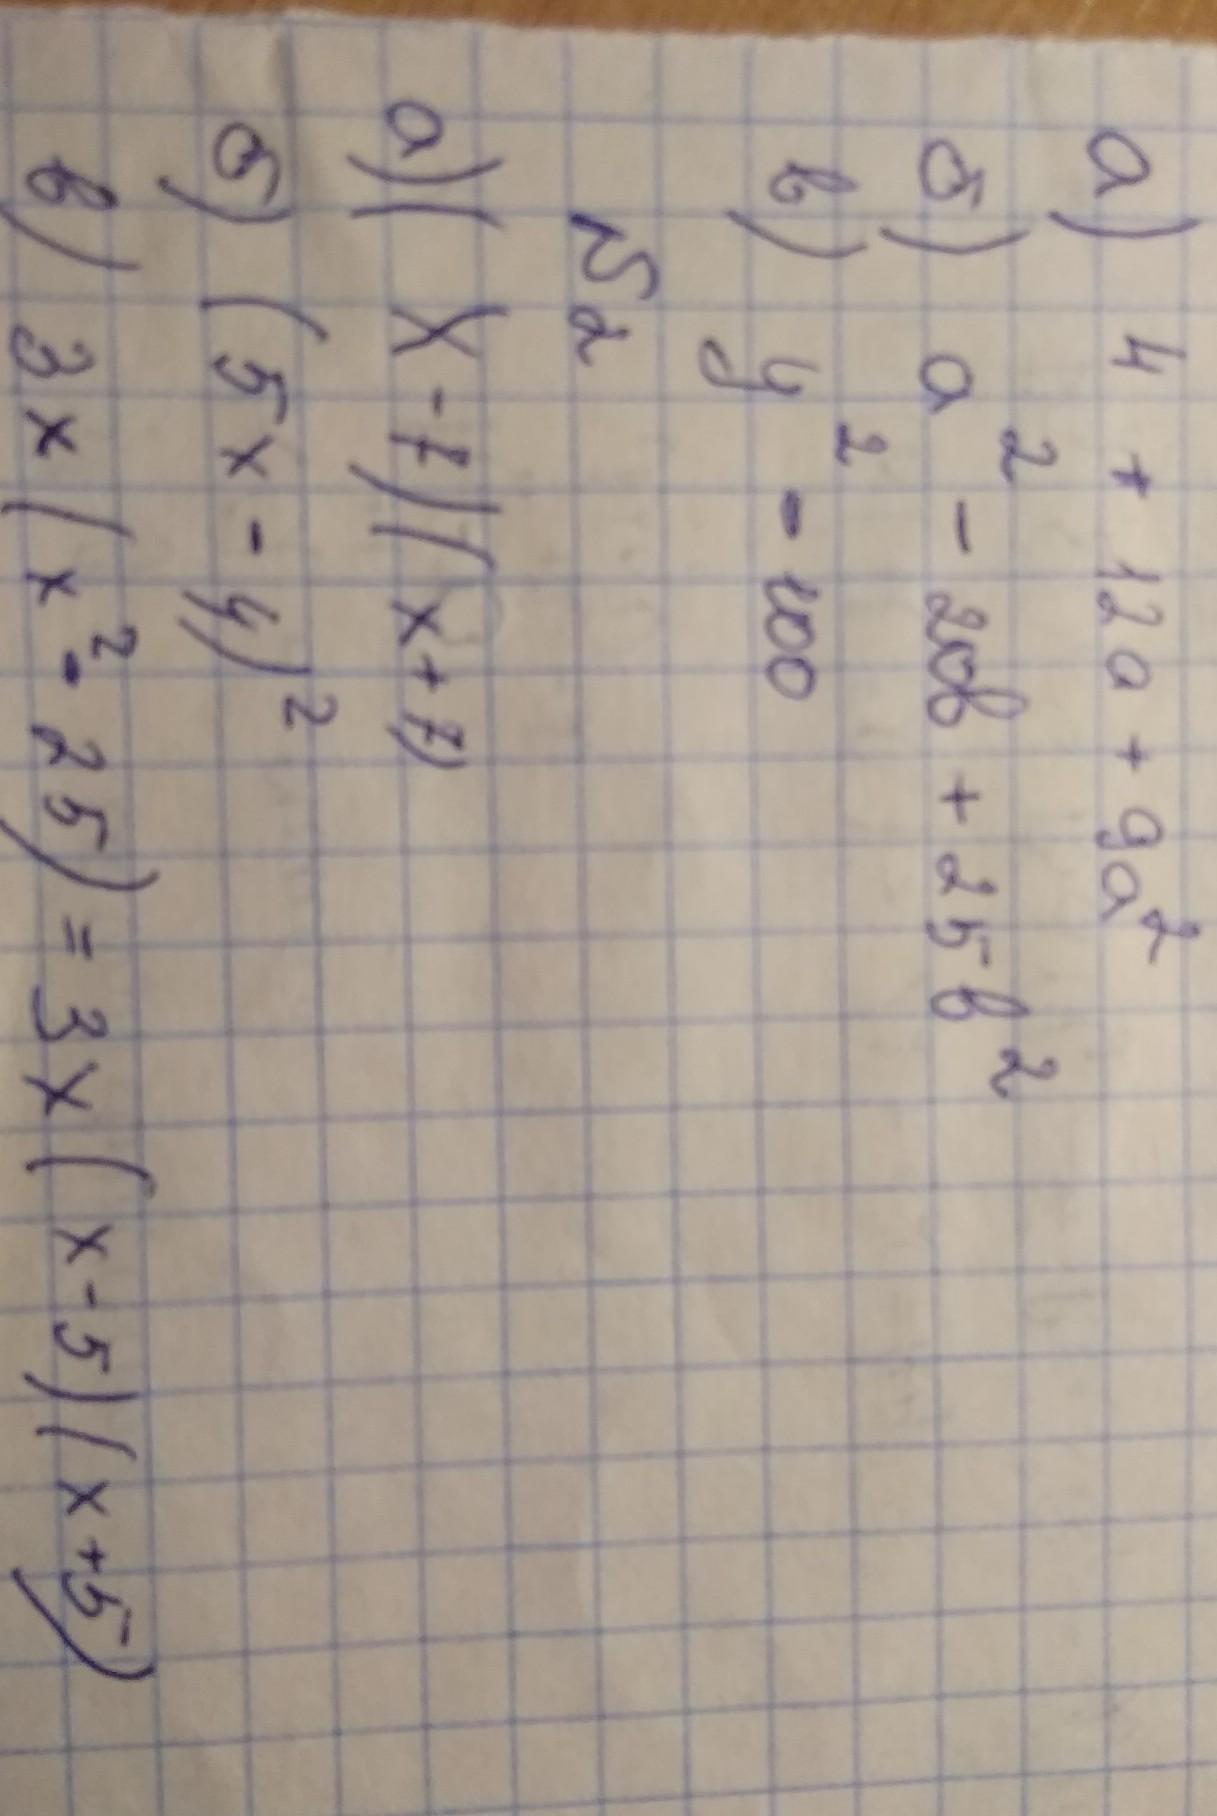 а) 4 + 12a + 9a²
б) a² - 20b + 25b²
в) y² - 100
№2
а) (x - 7)(x + 7)
б) (5x - 4)²
в) 3x(x² - 25) = 3x(x - 5)(x + 5)